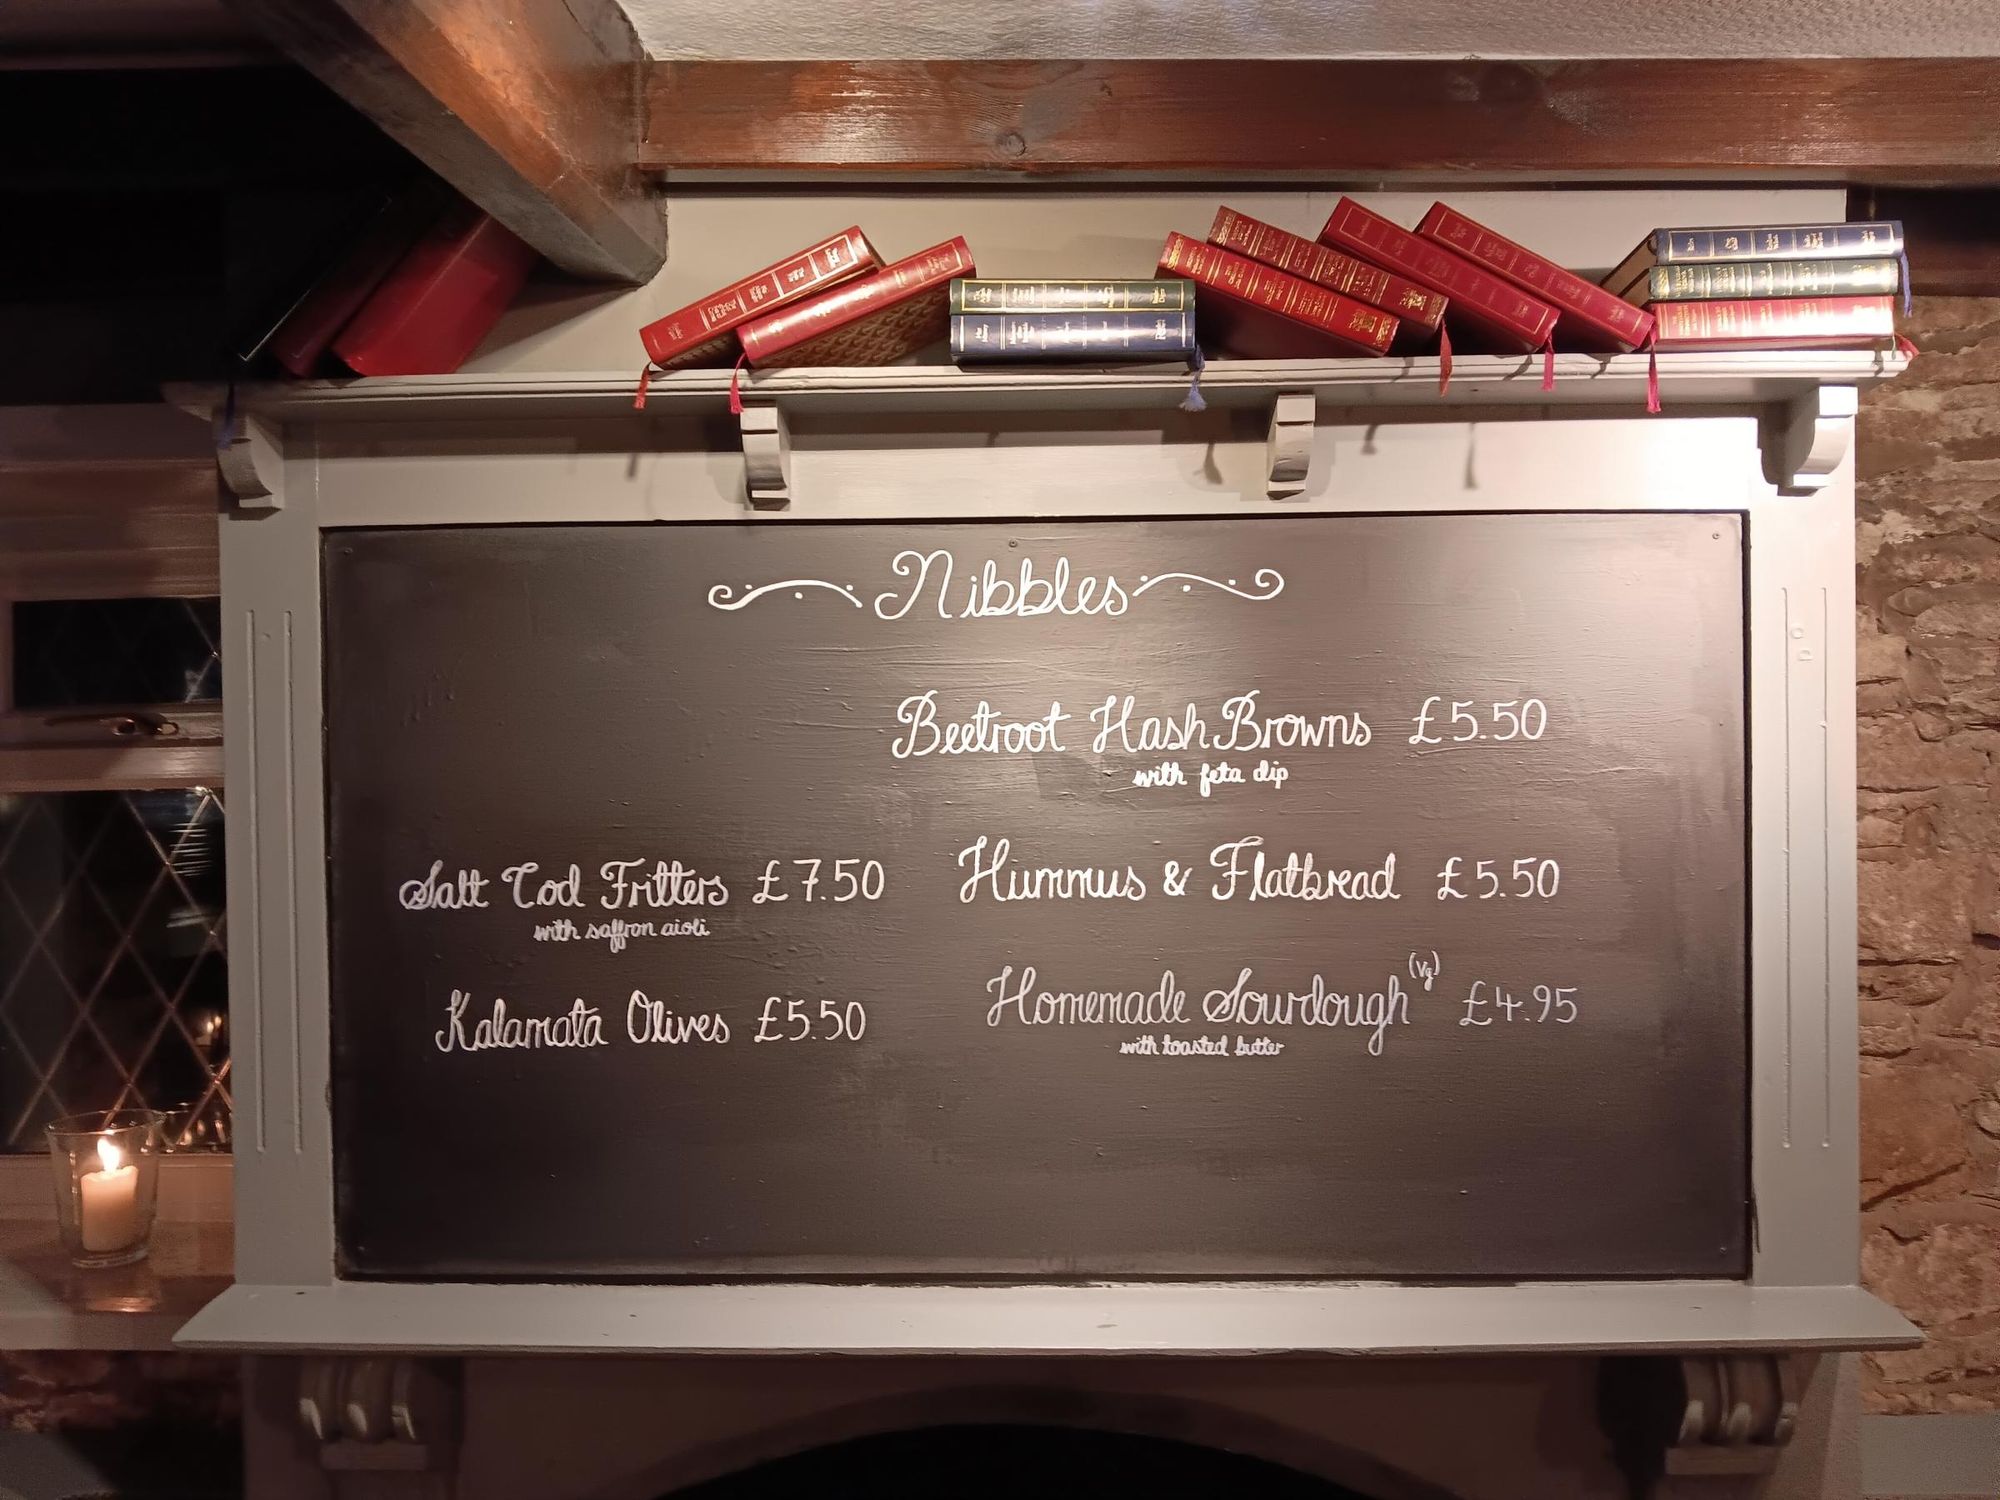 Nibbles
Beetroot Hash Browns £5.50
with feta dip
Salt Cod Fritters £7.50
with saffron aioli
Hummus & Flatbread £5.50
Kalamata Olives £5.50
Homemade Sourdough (Vg) £4.95
with toasted butter